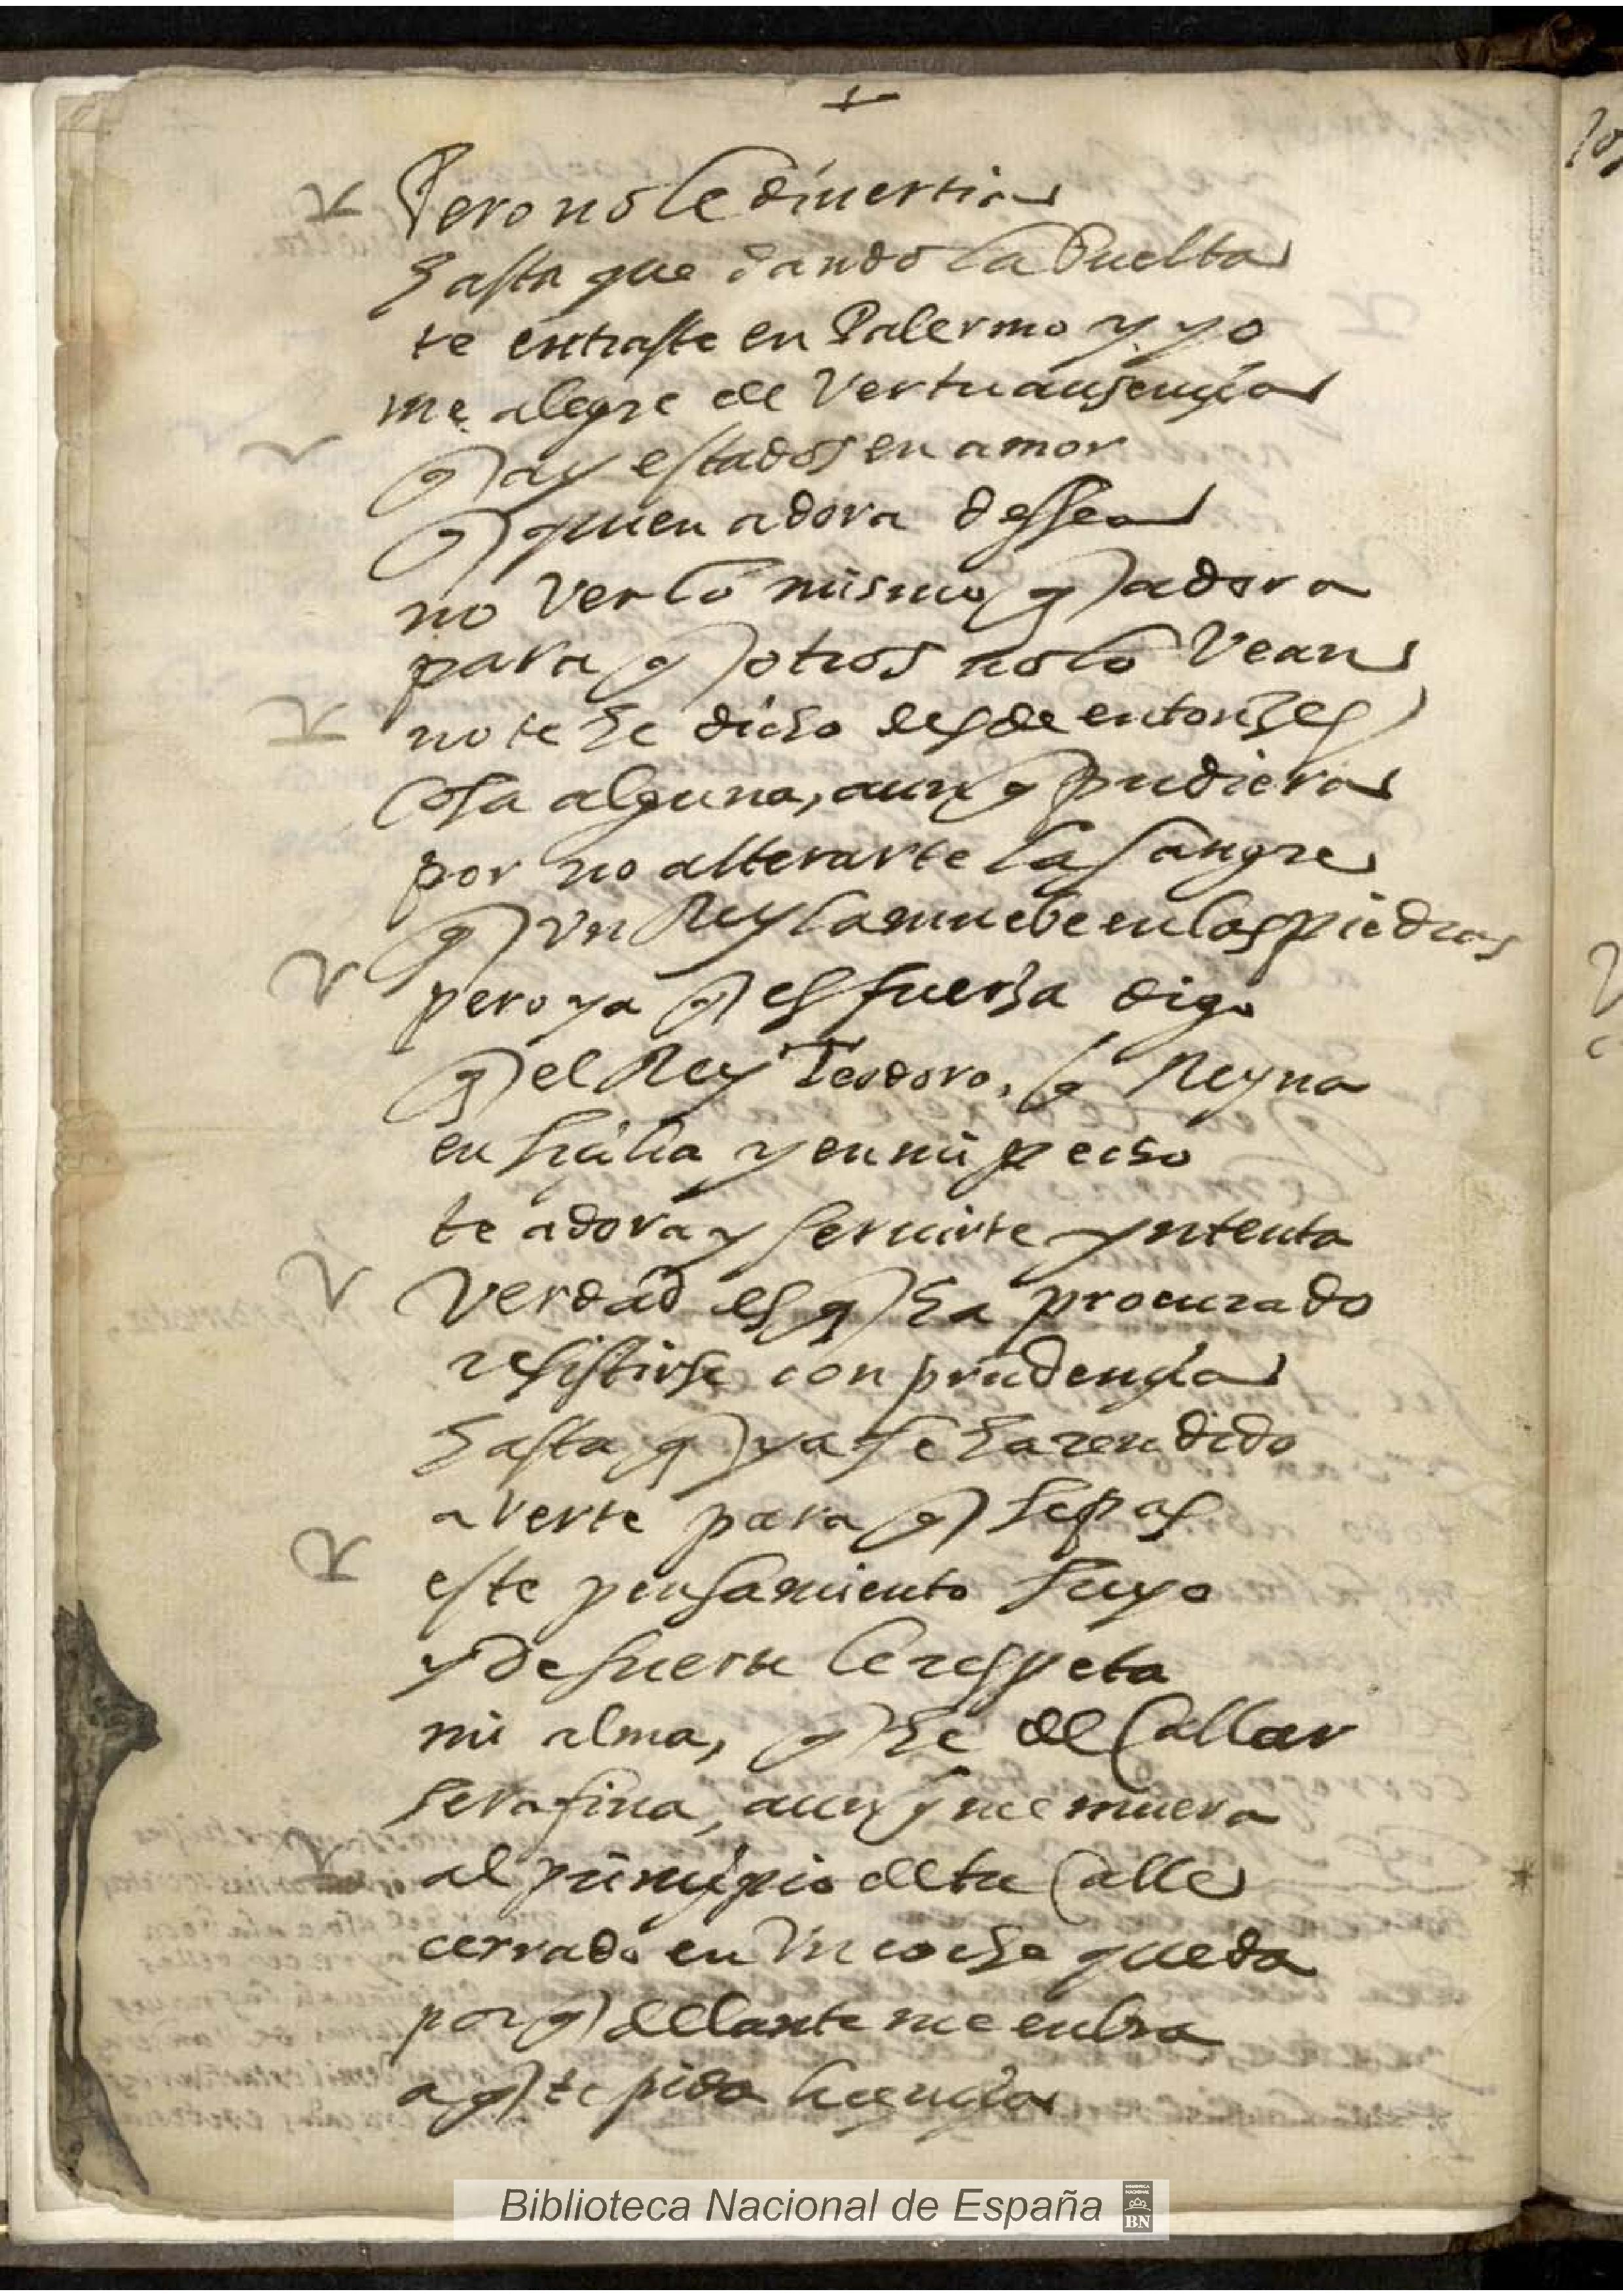 Pero no le diuertia
hasta que dando la Vuelta
te entraste en Palermo y yo
me alegre de Ver tu ausençia
q ay estados en amor
q quien adora dessea
no Ver lo mismo q adora
para q otros no lo Vean
no te he dicho desde entonzes
Cosa alguna, aunq pudiera
por no alterarte la sangre
q vn Rey la muebe en las piedras
pero ya q es fuerza digo
q el Rey Teodoro, q Reyna
en siçilia y en mi pecho
te adora y seruirte yntenta
Verdad es q ha procurado
resistirse con prudençia
hasta q ya se ha rendido
a verte para q sepas
este pensamiento suyo
y de suerte le respeta
mi alma, q he de Callar
serafina, aunq me muera
al prinçipio de tu Calle
cerrado en Vn coche queda
porq delante me enbia
a q te pida liçençia
Biblioteca Nacional de España
BN